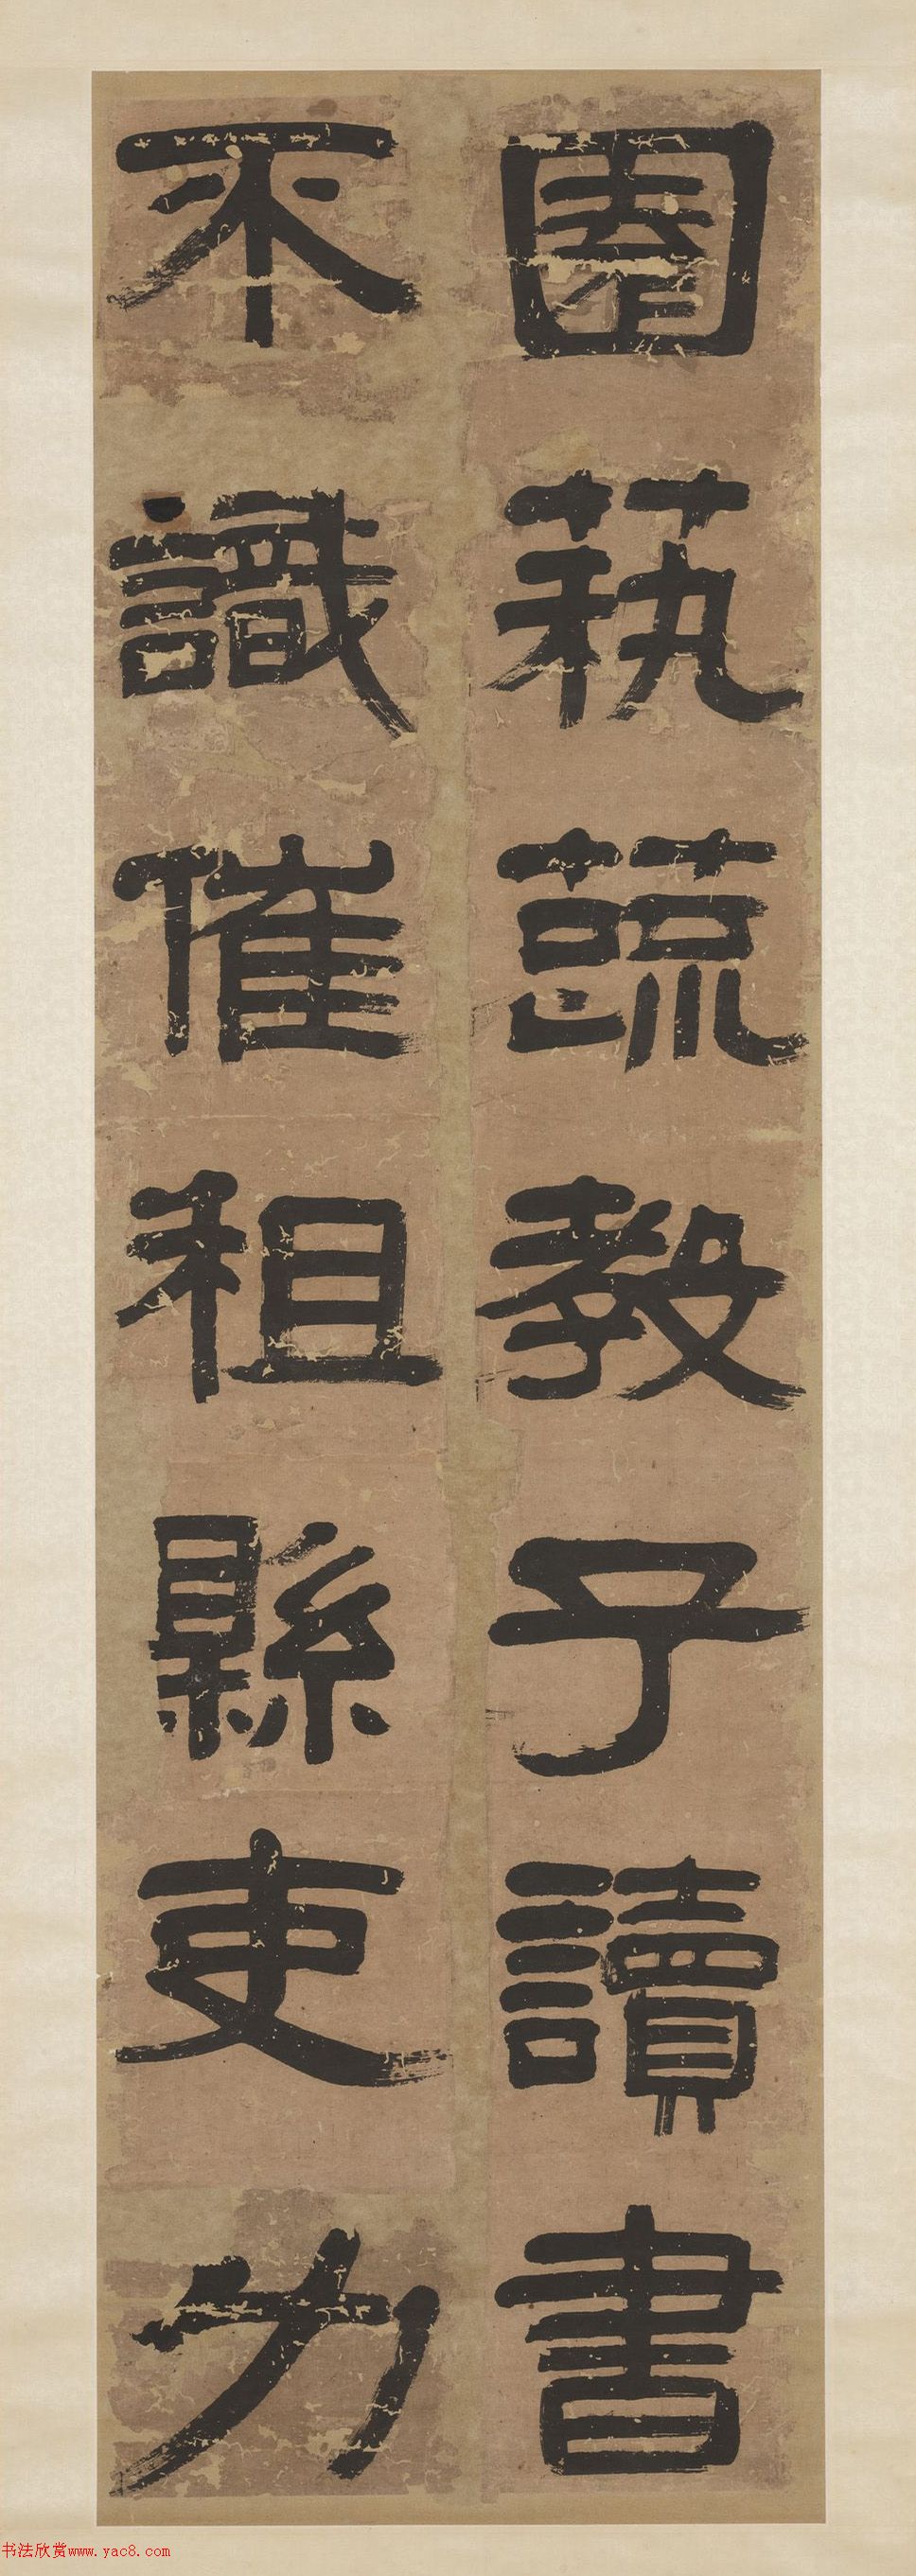 園蓺蔬教子讀書
不識催租縣吏力
书法欣赏www.yac8.com